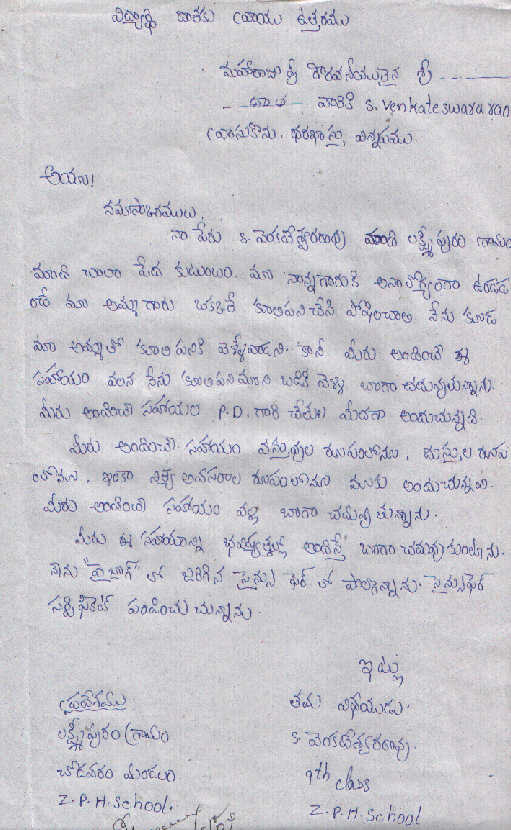 విద్యార్థి దాతకు వ్రాయు ఉత్తరము
మహారాజశ్రీ గౌరవనీయులైన శ్రీ
వారికి S. Venkateswararao
వ్రాసుకొను. విన్నపము
అయ్యా!
నమస్కారములు,
నా పేరు S. వెంకటేశ్వరరావు మాది లక్ష్మీపురం గ్రామం
మాది చాలా పేద కుటుంబం. మా నాన్నగారుకి అనారోగ్యంగా ఉండడ
మా అమ్మగారు ఒక్కరే కూలిపని చేసి పోషించాలి నేను కూడ
మా అమ్మతో కూలి పనికి వెళ్ళేవాడిని. కానీ మీరు అందించే ఈ
సహాయం వలన నేను కూలిపని మాని బడికి వెళ్ళి బాగా చదువుతున్నాను.
మీరు అందించే సహాయం P.D. గారి చేతుల మీదగా అందుచున్నది.
మీరు అందించే సహాయం వస్తువుల రూపంలోను, దుస్తుల రూపం
లోను, ఇంకా నిత్య అవసరాల రూపంలోనూ మాకు అందుచున్నవి.
మీరు అందించే సహాయం వల్ల బాగా చదువుతున్నాను.
మీరు ఈ సహాయాన్ని భవిష్యత్తుల్లో అందిస్తే బాగా చదువుకుంటాను.
నేను లో జరిగిన సైన్సు ఫేర్ లో పాల్గొన్నాను. సైన్సుఫేర్
సర్టిఫికెట్ పంపించుచున్నాను.
ఇట్లు
తమ విధేయుడు.
S. వెంకటేశ్వరరావు.
9th class
Z.P.H. School
లక్ష్మీపురం గ్రామం
చోడవరం మండలం
Z.P.H. School.